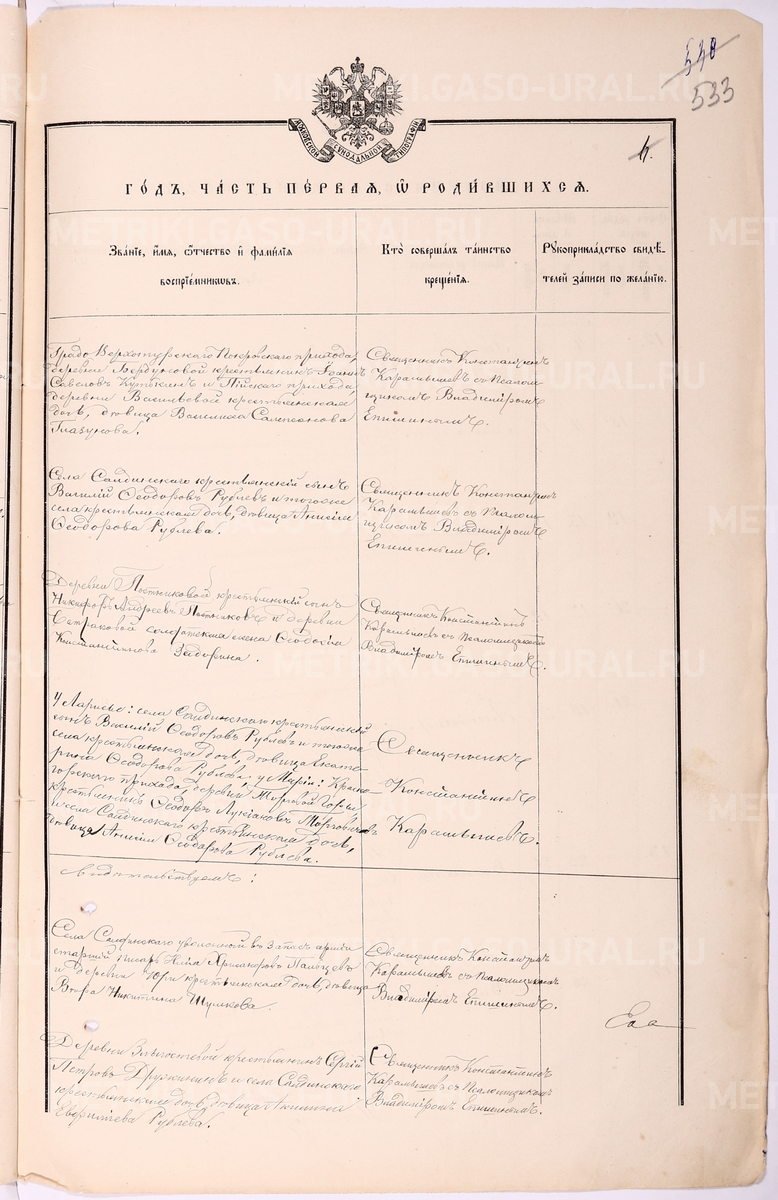 540
533
МОСКОВСКОЙ СѴНОДАЛЬНОЙ ТИПОГРАФІИ
4.
ГО́ДЪ, ЧА́СТЬ ПЕ́РВАЯ, Ѡ҆ РОДИ́ВШИХСЯ.
Зва́ніе, и҆́мя, ѻ҆́тчество и҆ фами́лія
воспріе́мникѡвъ.
Кто̀ соверша́лъ та́инство
креще́нія.
Рꙋкоприкла́дство свидѣ́-
телей за́писи по жела́нію.
Градо Верхотурскаго Покровскаго прихода,
деревни крестьянинъ
и прихода,
деревни Васильевой крестьянская
дочь, девица Василиса
Глазунова.
Священникъ Константинъ
Карамышев съ Псалом
щикомъ Владиміромъ
Епишинымъ.
Села Салдинскаго крестьянскій сынъ
Василій Ѳеодоровъ Рублевъ и тогоже
села крестьянская дочь, девица Анисія
Ѳеодорова Рублева.
Священникъ Константинъ
Карамышевъ съ Псалом
щикомъ Владиміромъ
Епишинымъ.
Деревни Постниковой крестьянскій сынъ
Никифоръ Андреевъ Постниковъ и деревни
солдатская жена Ѳеодосія
Константинова Задорина.
Священникъ Константинъ
Карамышевъ съ Псаломщикомъ
Владиміромъ Епишинымъ.
У Ларисы: села Салдинскаго крестьянскій
сынъ Василій Ѳеодоровъ Рублевъ и тогоже
села крестьянская дочь, девица Екате-
рина Ѳеодорова Рублева, у Маріи: Красно-
горскаго прихода, деревни Горы
крестьянинъ Ѳеодоръ Лукіановъ
и села Салдинскаго крестьянская дочь,
девица Анисія Ѳеодорова Рублева.
Священникъ
Константинъ
Карамышевъ.
свидетельствуемъ:
Села Салдинскаго уволенный въ запасъ арміи
старшій писарь Илія
и деревни крестьянская дочь, девица
Вѣра Никитина Шумкова.
Священникъ Константинъ
Карамышевъ съ Псаломщикомъ
Владиміромъ Епишинымъ.
Деревни крестьянинъ Сергій
Петровъ Дружининъ и села Салдинскаго
крестьянская дочь, девица
Рублева.
Священникъ Константинъ
Карамышевъ съ Псаломщикомъ
Владиміромъ Епишинымъ.
METRIKI.GASO-URAL.RU